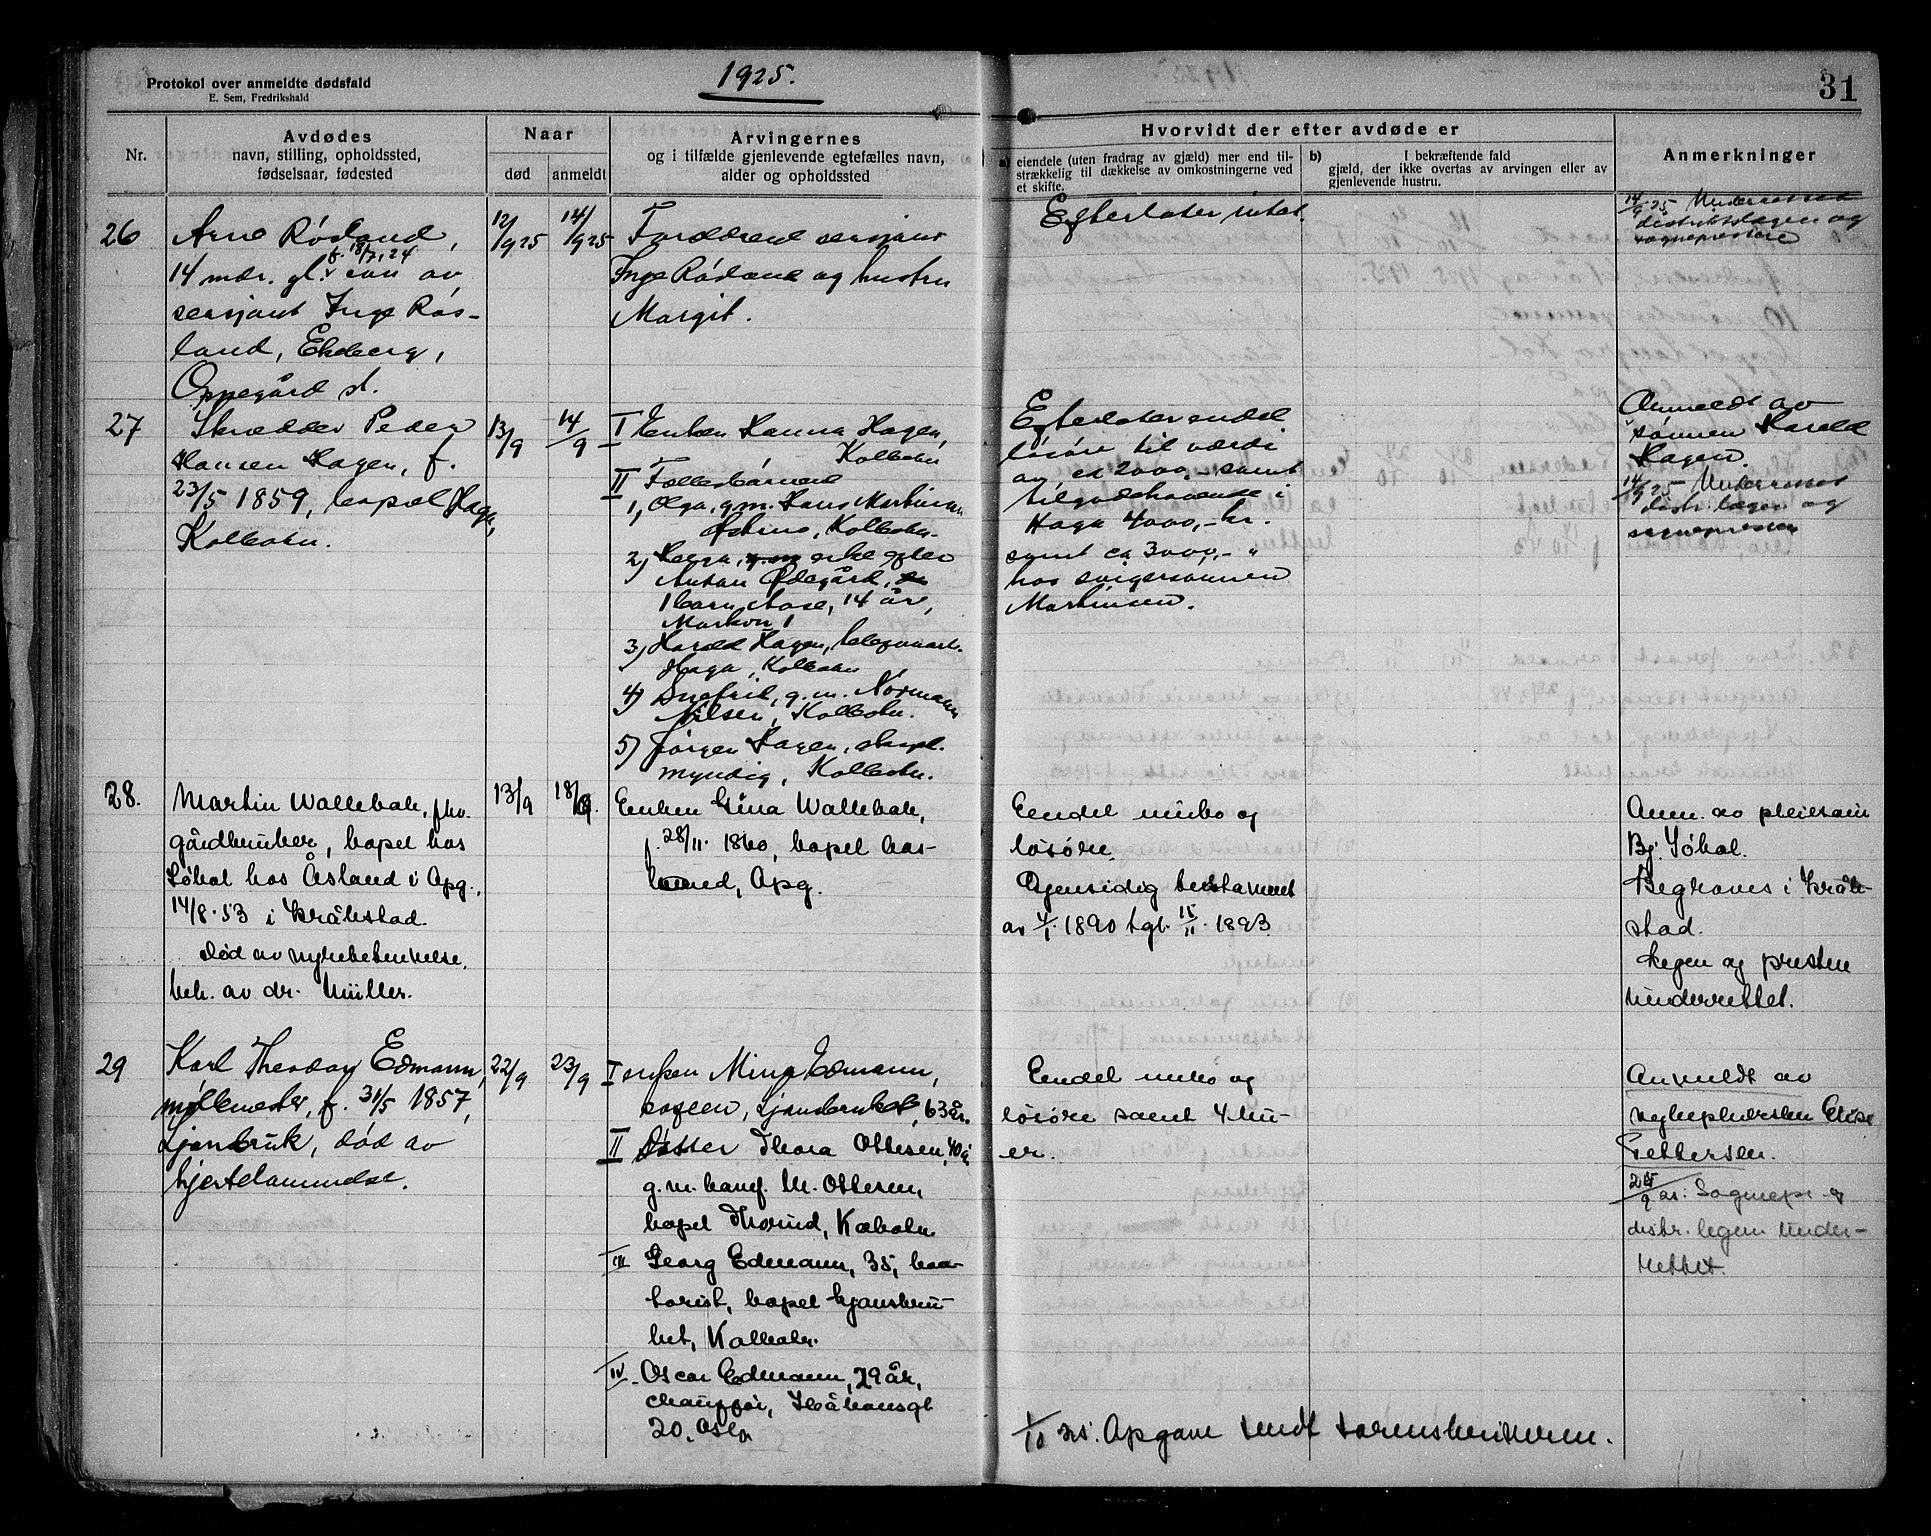 Protokol over anmeldte dødsfald
E. Sem, Fredrikshald
1925.
31
Nr.
Avdødes
navn, stilling, opholdssted,
fødselsaar, fødested
Naar
død
anmeldt
Arvingernes
og i tilfælde gjenlevende egtefælles navn,
alder og opholdssted
Hvorvidt der efter avdøde er
a) eiendele (uten fradrag av gjæld) mer end til-
strækkelig til dækkelse av omkostningerne ved
et skifte.
b) I bekræftende fald
gjæld, der ikke overtas av arvingen eller av
gjenlevende hustru.
Anmerkninger
26
Arne Rösland,
f. 13/7.24
14 mdr. gl. sön av
sersjant Inge Rös-
land, Ekeberg,
Oppegård st.
12/9 25
14/9 25
Forældrene sersjant
Inge Rösland og hustru
Margit.
Efterlater intet.
14/9 25 Underrettet
distriktslægen og
sognepresten
27
Skrædder Peder
Hansen Hagen, f.
23/5 1859, bopæl Haga,
Kolbotn.
13/9
14/9
I Enken Hanna Hagen,
Kolbotn
II Fællesbörnene
1, Olga, g.m. Hans Martinsen
Østmo, Kolbotn.
2) Helga, g.m. enke efter
Anton Ødegård,
1 barn Aase, 14 år,
3) Harald Hagen, telegrafarb.
Haga, Kolbotn
4) Snefrid, g.m. Norman
Nilsen, Kolbotn.
5) Jörgen Hagen,
myndig, Kolbotn.
Efterlater endel
lösöre til værdi
av ca 2000,- samt
tilgodehavende i
Haga 4000,- kr.
samt ca 3000,- "
hos svigersönnen
Martinsen.
Anmeldt av
sönnen Harald
Hagen.
14/9 25 Underrettet
distr. lægen og
sognepresten
28.
Martin Wallebæk, fhv.
gårdbruker, bopel hos
Söhol hos Åsland i Opg.,
14/8.53 i Kråkstad.
död av nyrebetennelse,
beh. av dr. Müller.
13/9
18/9.
Enken Gina Wallebæk,
f. 28/11. 1860, bopel hos-
bonded, Opg.
Eendel innbo og
lösöre.
Gjensidig testament
av 4/1. 1890 tgl. 15/11. 1893.
Anm. av pleiesönn
Bj. Söhol.
Begraves i Kråk-
stad.
Legen og presten
underrettet.
29
Karl Theodor Edmann,
möllemester, f. 31/5 1857,
Ljansbruk, död av
hjertelammelse.
22/9
23/9
I enken Mina Edmann,
Ljansbruket, 63 år.
II Datter Thora Ottesen, 40 å,
g.m. banef. M. Ottesen,
bopel Thorud, Kolbotn
III Georg Edmann, 35,
bopel Ljansbru-
ket, Kolbotn.
IV. Oscar Edmann, 29 år,
chaufför, Håkonsgt
20, Oslo
Eendel innbo og
lösöre samt 4 ku-
er.
Anmeldt av
sykepleiersken Elise
Pettersen.
24/9 as: Sognepr. og
distr. legen under-
rettet.
1/10 as: Opgave sendt sorenskriveren.